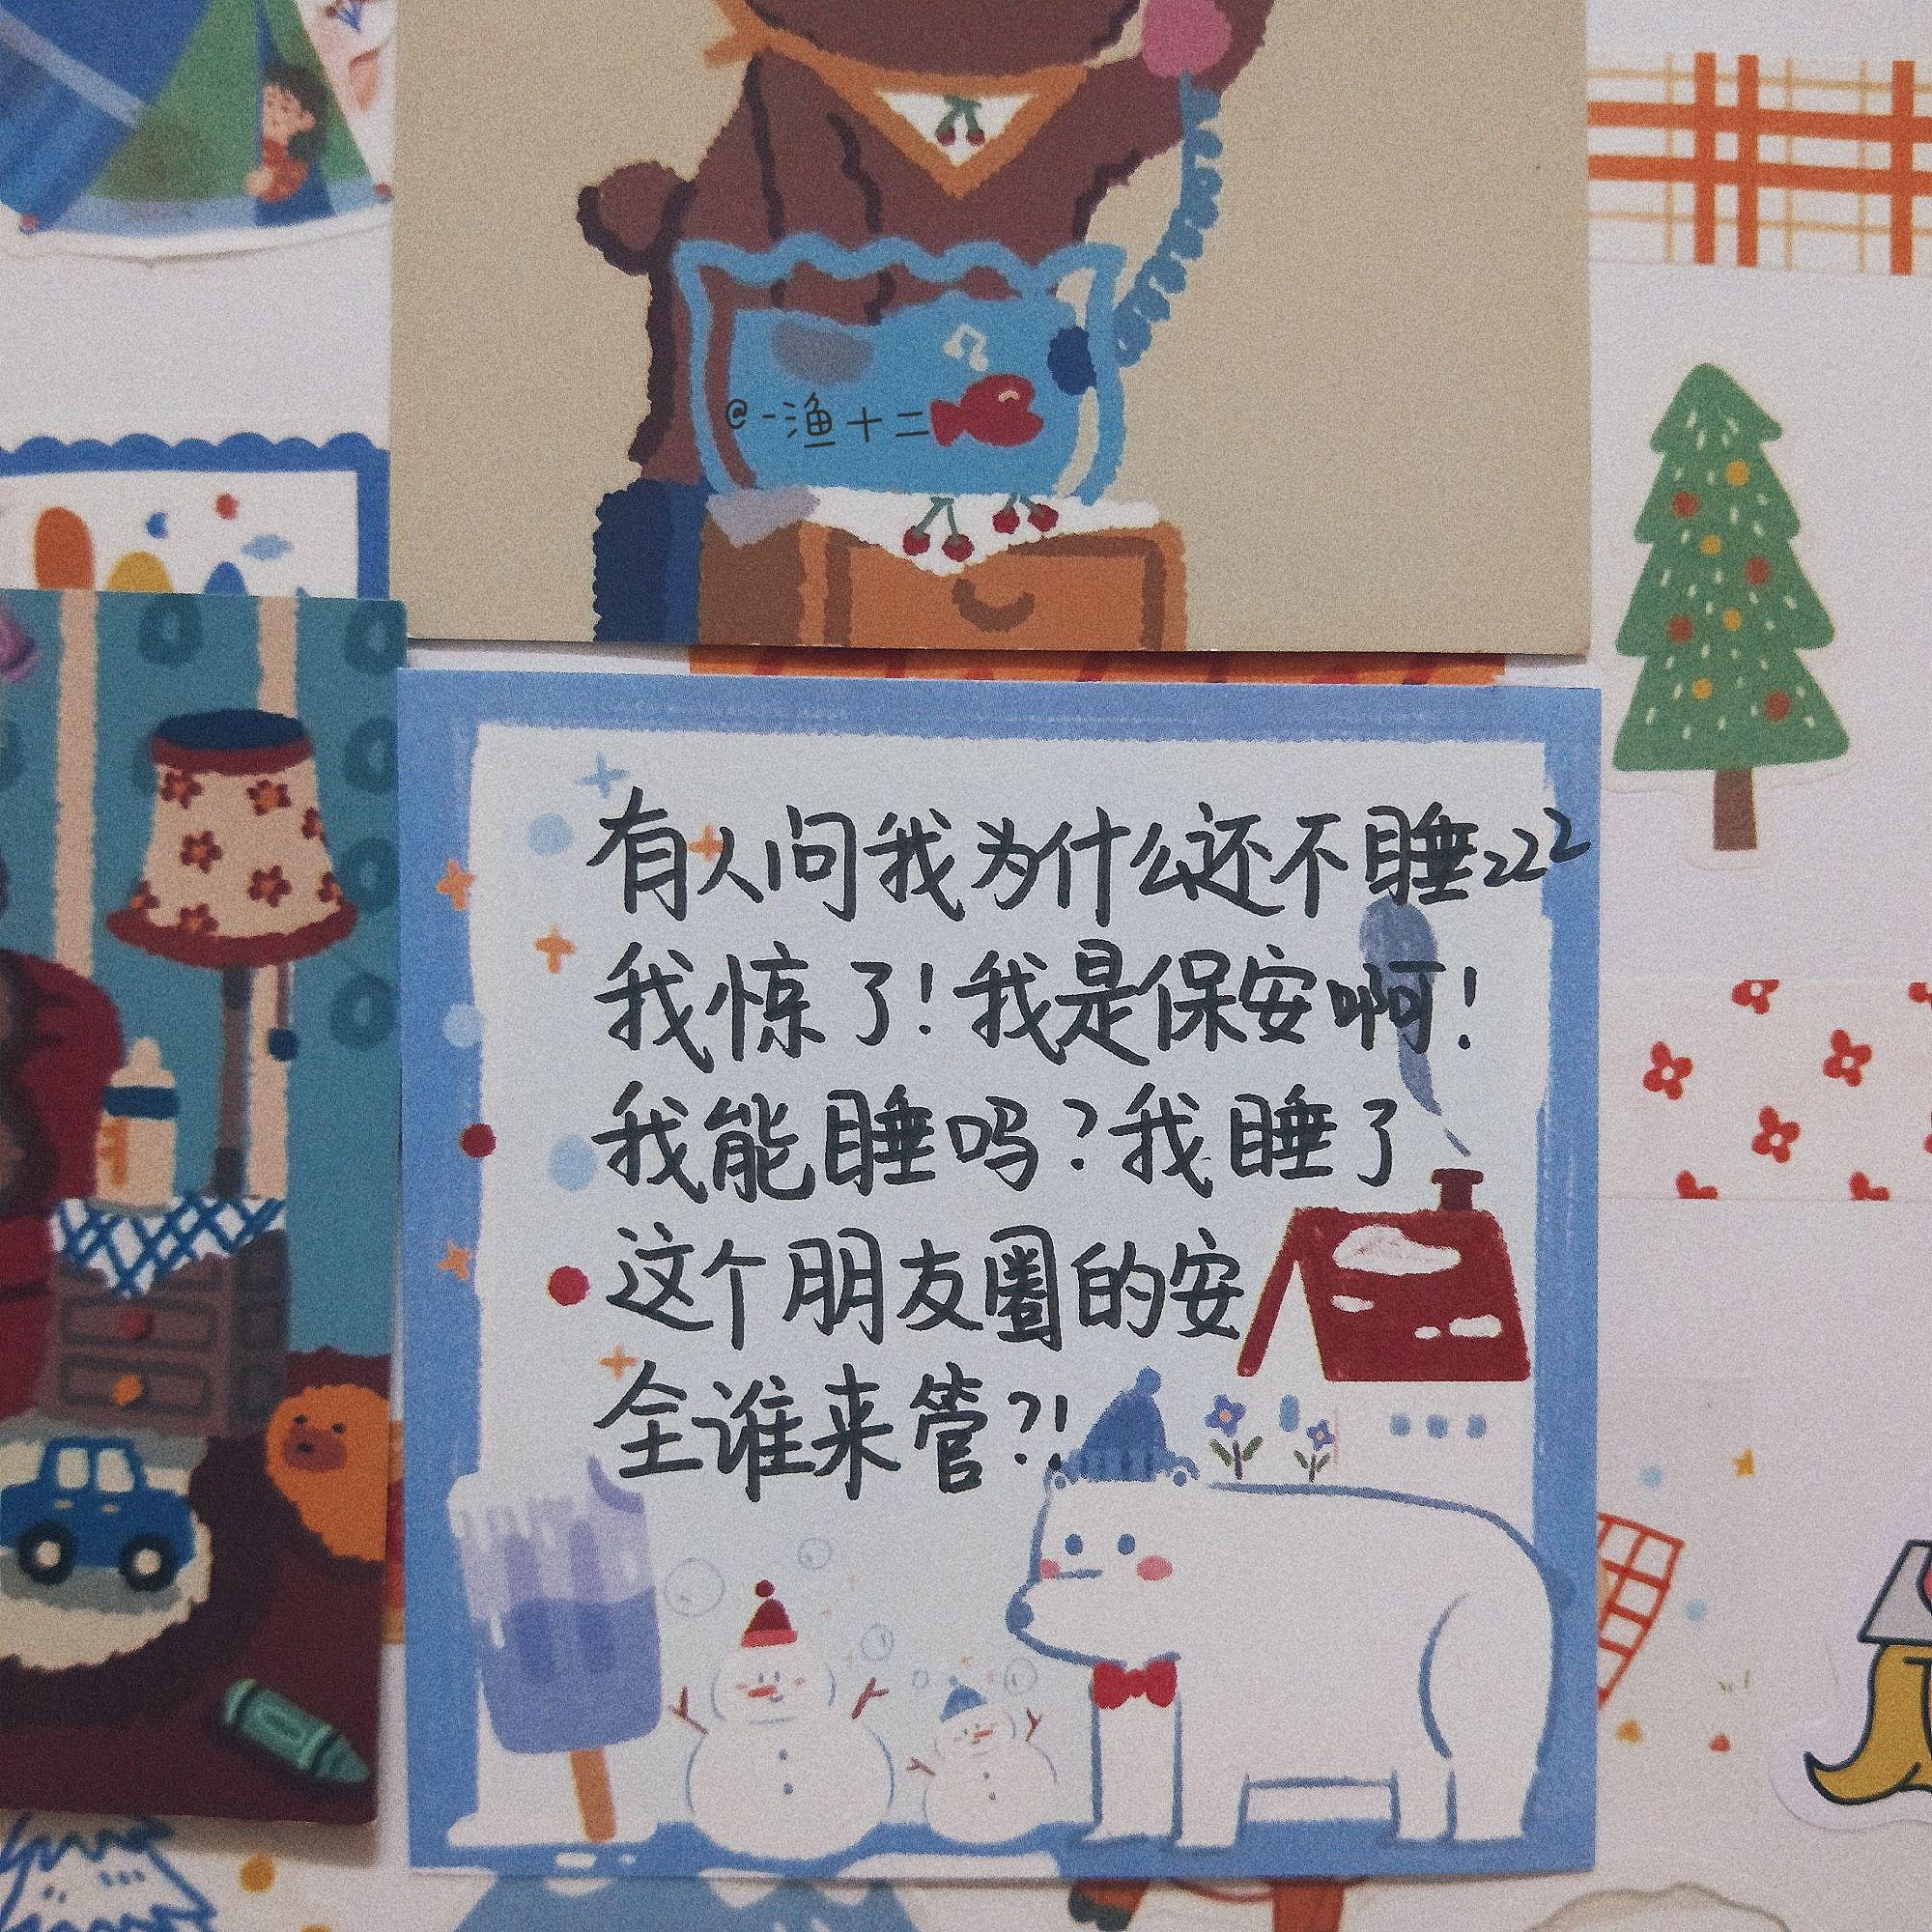 @-渔十二
有人问我为什么还不睡zzz
我惊了!我是保安啊!
我能睡吗?我睡了
这个朋友圈的安
全谁来管?!